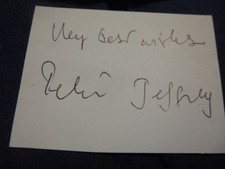 My best wishes
Peter Jeffrey